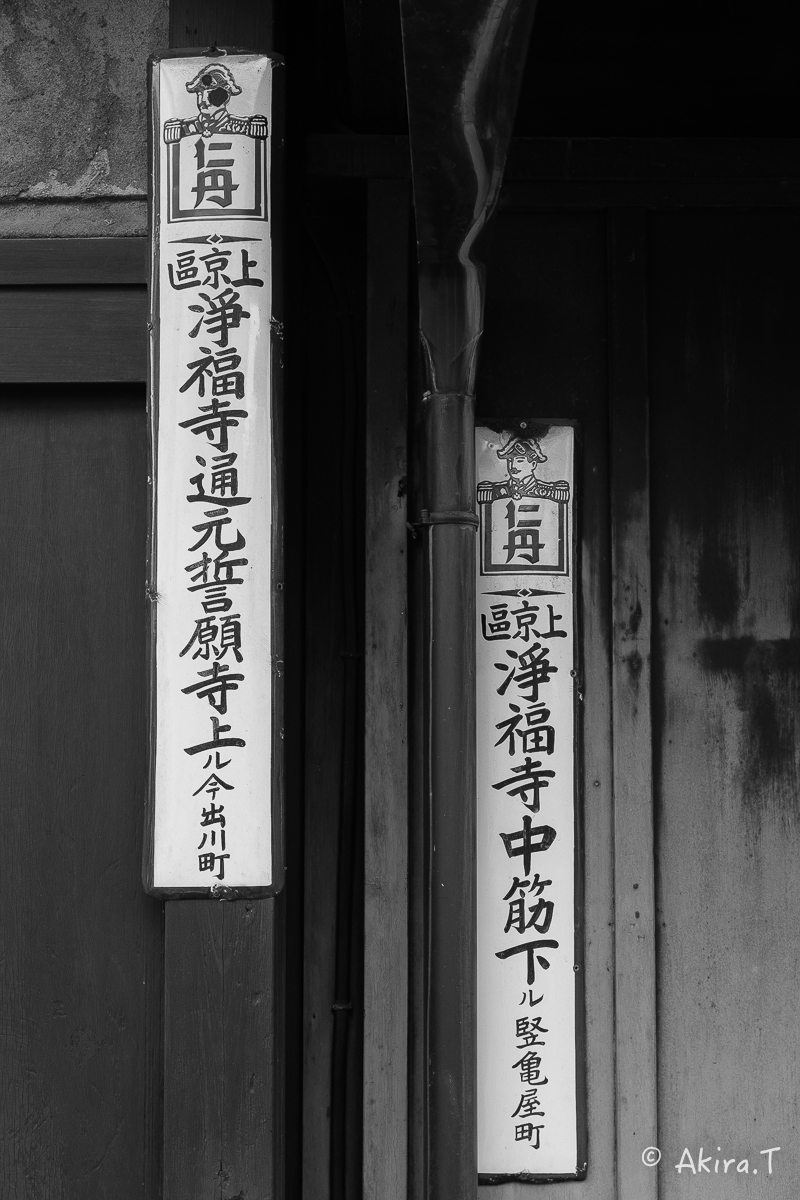 仁丹
上京區
淨福寺通元誓願寺上ル今出川町
仁丹
上京區
淨福寺中筋下ル竪亀屋町
© Akira.T